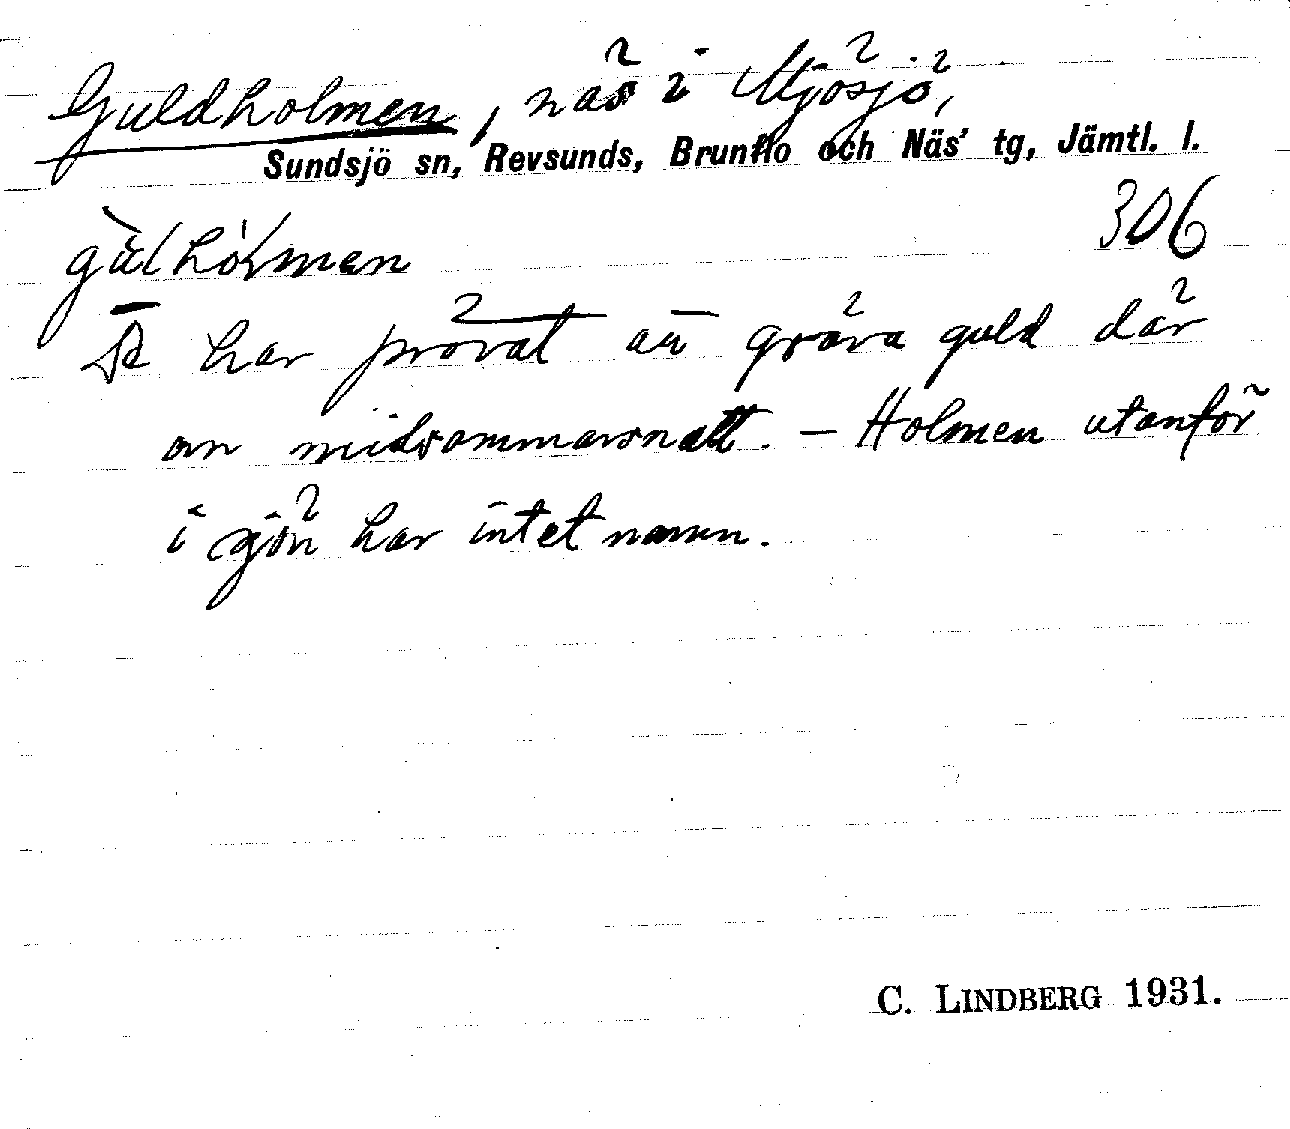 Guldholmen, näs i Mjösjö,
Sundsjö sn, Revsunds, Brunflo och Näs' tg, Jämtl. l.
306
De har prövat att gräva guld där
en midsommarsnatt. – Holmen utanför
i sjön har intet namn.
C. LINDBERG 1931.